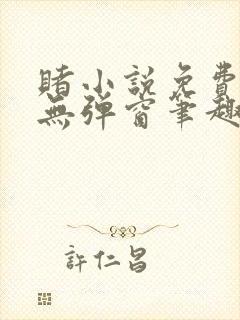 賭小説免費
無彈窗筆趣
許仁昌